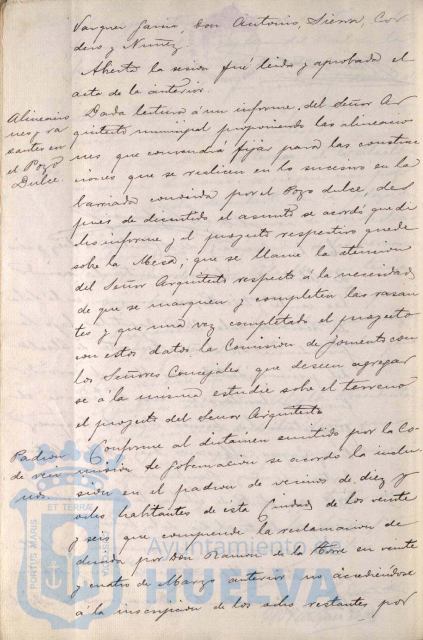 Vazquez Garcia, Don Antonio, Sierra, Cor
dero y Nuñez.
Abierta la sesion fué leida y aprobada el
acta de la anterior.
Alineacio
nes y ra
santes en
el Pozo
Dulce
Dada lectura á un informe del Señor Ar
quitecto municipal proponiendo las alineacio
nes que convendria fijar para las construc
ciones que se realicen en lo sucesivo en la
barriada conocida por el Pozo dulce, des
pues de discutido el asunto se acordó que di
cho informe y el proyecto respectivo quede
sobre la Mesa; que se llame la atencion
del Señor Arquitecto respecto á la necesidad
de que se marquen y completen las rasan
tes y que una vez completado el proyecto
con estos datos la Comision de fomento con
los Señores Concejales que deseen agregar
se á la misma estudie sobre el terreno
el proyecto del Señor Arquitecto
Padron
de veci
nos.
Conforme al dictamen emitido por la Co
mision de Gobernacion se acordó la inclu
sion en el padron de vecinos de diez y
ocho habitantes de esta Ciudad de los veinte
y seis que comprende la reclamacion de
ducida por Don Ramon de la Torre en veinte
y cuatro de Marzo anterior no accediendose
á la inscripcion de los ocho restantes por
PORTUS MARIS
ET TERRAE
Ayuntamiento de
HUELVA